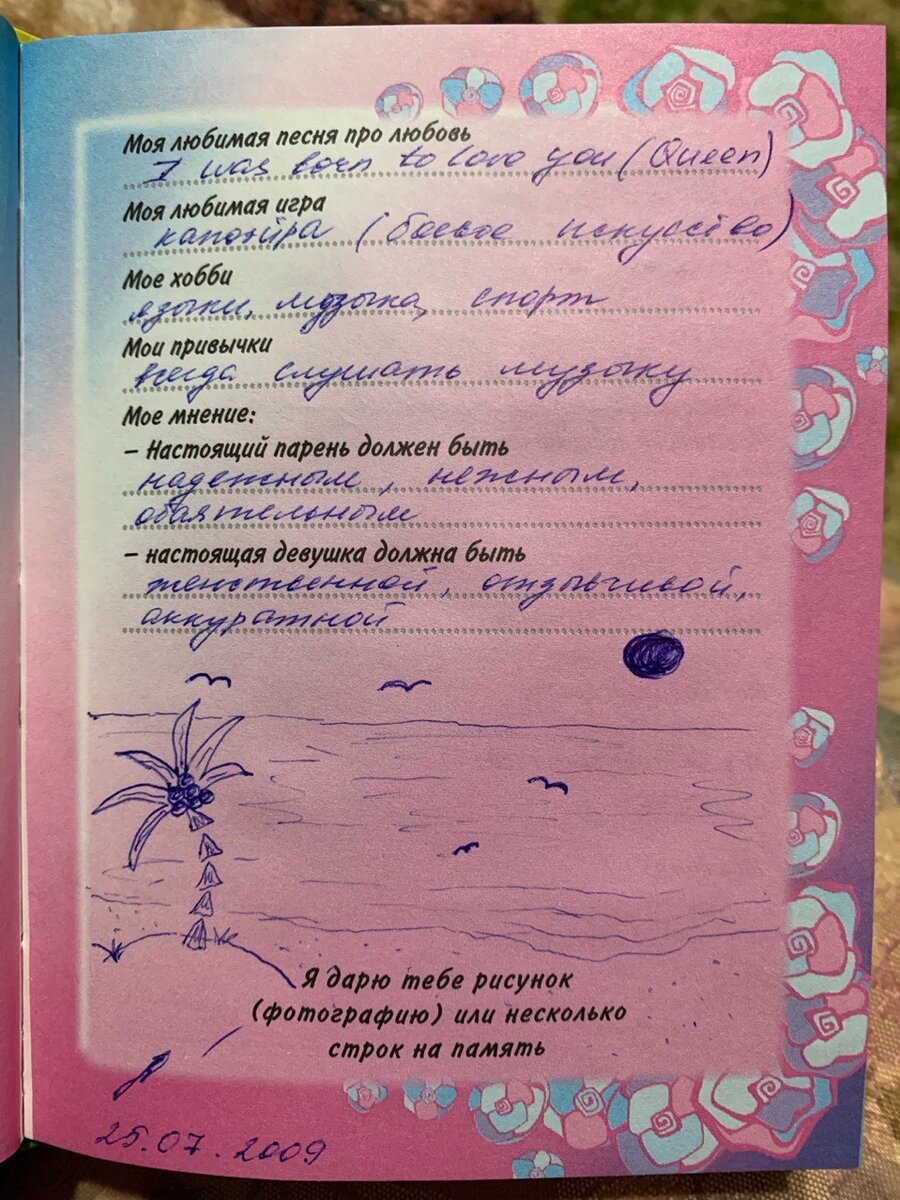 Моя любимая песня про любовь
I was born to love you (Queen)
Моя любимая игра
капоэйра (боевое искусство)
Мое хобби
языки, музыка, спорт
Мои привычки
всегда слушать музыку
Мое мнение:
– Настоящий парень должен быть
надежным, нежным,
обаятельным
– настоящая девушка должна быть
женственной, отзывчивой,
аккуратной
Я дарю тебе рисунок
(фотографию) или несколько
строк на память
25.07.2009